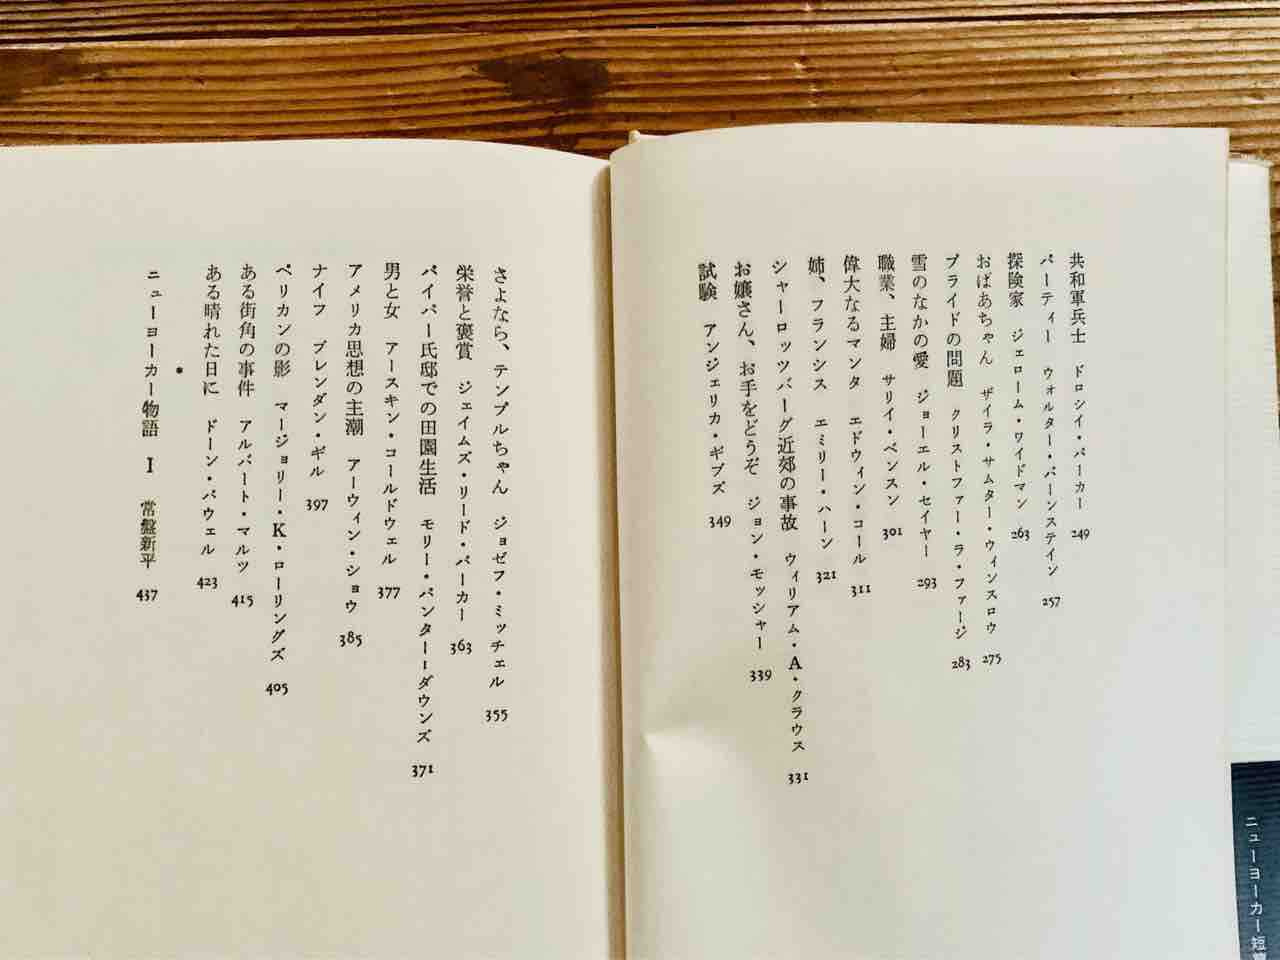 共和軍兵士 ドロシイ・パーカー 249
パーティー ウォルター・バーンステイン 257
探険家 ジェローム・ワイドマン 263
おばあちゃん ザイラ・サムター・ウィンスロウ 275
プライドの問題 クリストファー・ラ・ファージ 283
雪のなかの愛 ジョーエル・セイヤー 293
職業、主婦 サリイ・ベンスン 301
偉大なるマンタ エドウィン・コール 311
姉、フランシス エミリー・ハーン 321
シャーロッツバーグ近郊の事故 ウィリアム・A・クラウス 331
お嬢さん、お手をどうぞ ジョン・モッシャー 339
試験 アンジェリカ・ギブズ 349
さよなら、テンプルちゃん ジョゼフ・ミッチェル 355
栄誉と褒賞 ジェイムズ・リード・パーカー 363
パイパー氏邸での田園生活 モリー・パンター=ダウンズ 371
男と女 アースキン・コールドウェル 377
アメリカ思想の主潮 アーウィン・ショウ 385
ナイフ ブレンダン・ギル 397
ペリカンの影 マージョリー・K・ローリングズ 405
ある街角の事件 アルバート・マルツ 415
ある晴れた日に ドーン・パウエル 423
●
ニューヨーカー物語 I 常盤新平 437
ニューヨーカー短